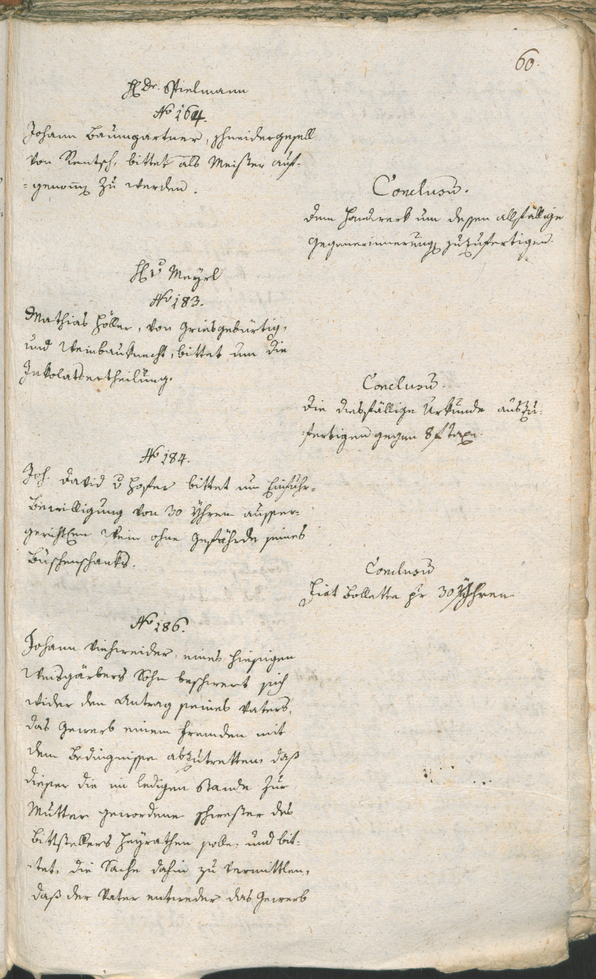 60.
H Dr. Spielmann
No 164.
Johann Baumgartner, schneidergesell
von Rentsch, bittet als Meister auf-
-genom̅ zu werden.
Conclusũ.
dem Handwerk um dessen allfällige
Gegenerinnerung zuzufertigen.
H v Mayrl
No 183.
Mathias Höller, von Gries gebürtig,
und Weinbauknecht, bittet um die
Inkolatsertheilung.
Conclusũ.
die diesfällige Urkunde auszu-
fertigen gegen 8 f taxe.
No 184.
Joh. David v Hofer bittet um Einfuhr-
Bewilligung von 30 Yhren ausser-
gerichtlen Wein ohne Gefährde seines
Buschenschanks.
Conclusũ
Fiat Bolletta pr 30 Yhren.
No 186.
Johann Viehweider, eines hiesigen
Weisgärbers Sohn beschwert sich
wider den Antrag seines Vaters,
das Gewerb einem Fremden mit
dem Bedingnisse abzutretten, daß
dieser die im ledigen Stande zur
Mutter gewordene schwester des
Bittstellers heyrathen solle, und bit-
-tet, die Sache dahin zu vermittlen,
daß der Vater entweder das Gewerb